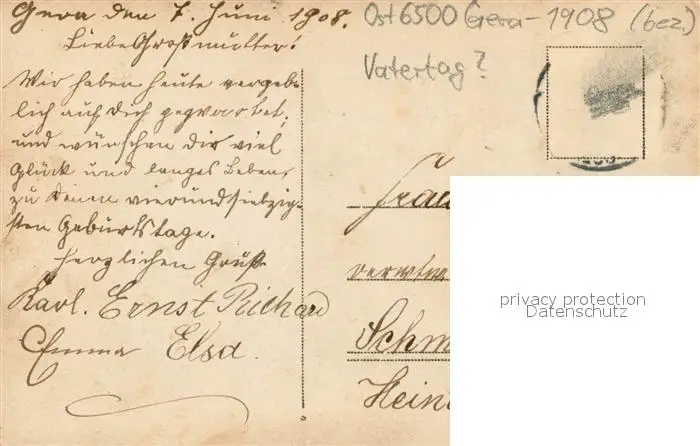 Gera den 7. Juni 1908.
Liebe Großmutter!
Wir haben heute vergeb-
lich auf dich gewartet,
und wünschen dir viel
Glück und langes Leben,
zu deinem vierundsiebzig-
sten Geburtstage.
Herzlichen Gruß
Karl. Ernst Richard
Emma Elsa.
Ost 6500 Gera - 1908 (bez.)
Vatertag?
Frau
verwitw
Schm
Hein
privacy protection
Datenschutz